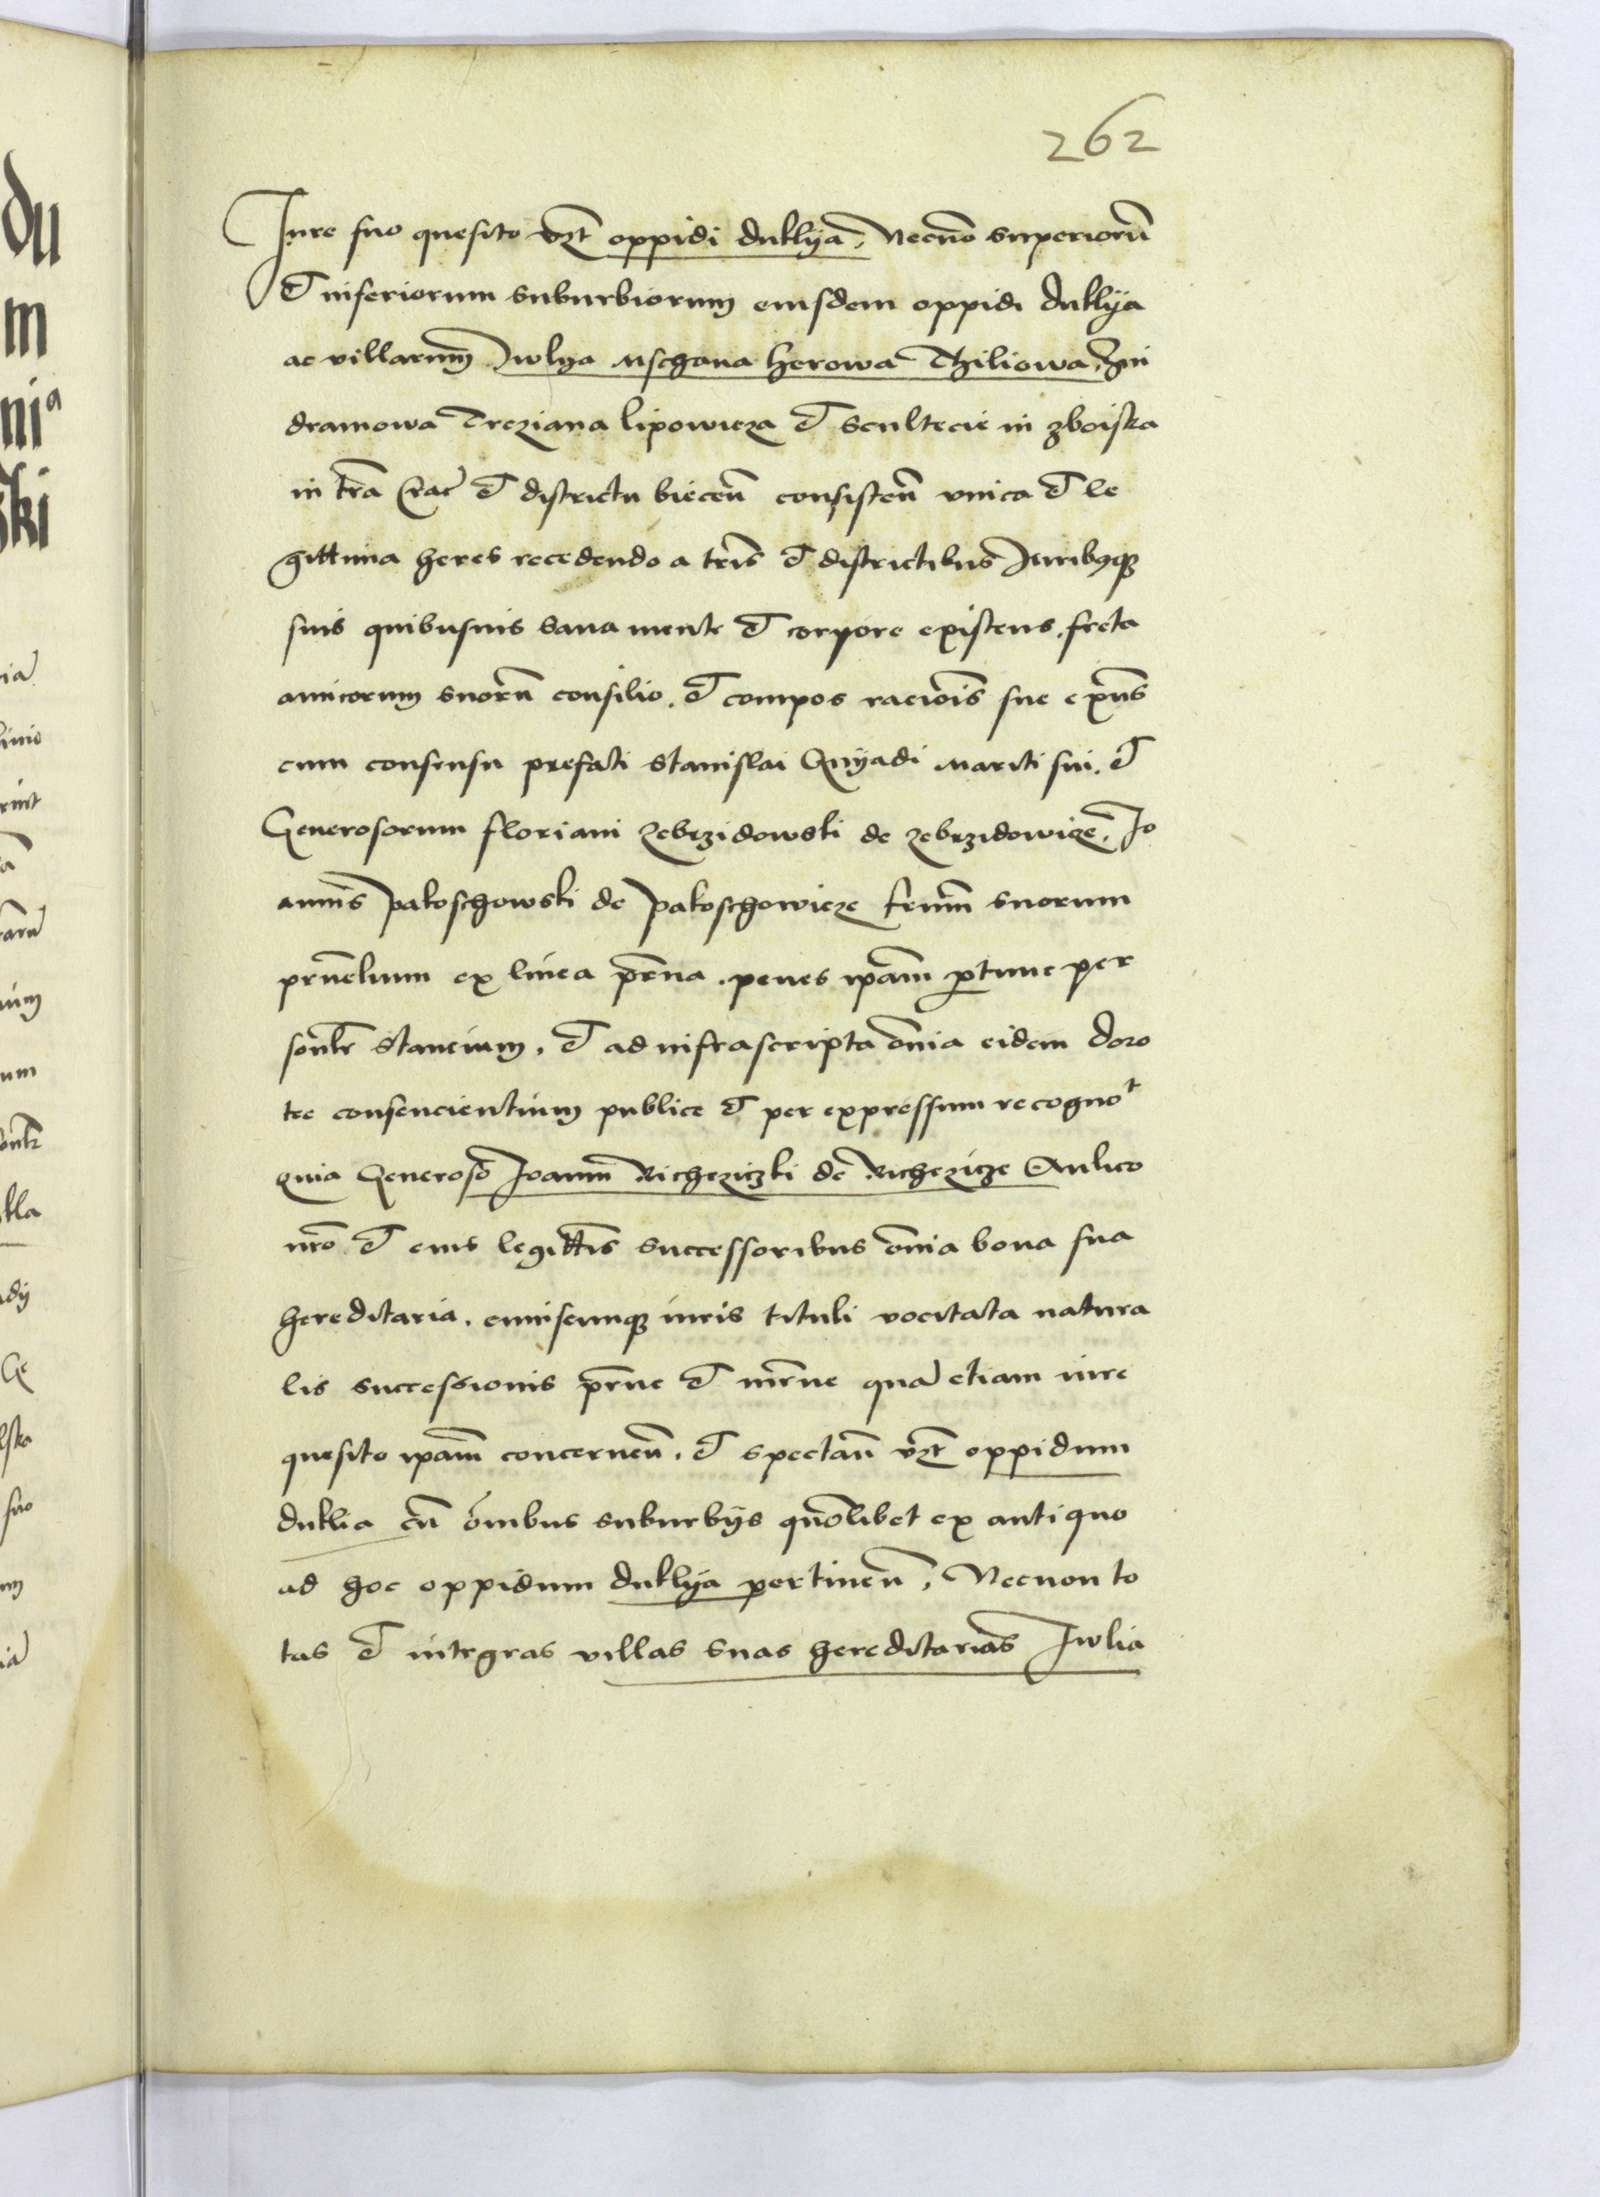 262
Jure suo quesito vꝫt oppidi duklya, Necnō superiorū
et inferiorum suburbiorum eiusdem oppidi duklya
ac villarum Jwlya Mschana herowa Thiliowa, Zin
dramowa Treziana lipowicza et scultecie in zboiska
in tr̄a Crac̄ et districtu biecen̄ consisten̄ vnica et le
gittima heres recedendo a tr̄is et districtibus Juribusq̨
suis quibusuis sana mente et corpore existens, freta
amicorum suorū consilio, et compos racio̅is sue ex̄ns
cum consensu prefati Stanislai Cnyadi Mariti sui, et
Generosorum floriani Zebrzidowski de Zebrzidowicze, Jo
annis Pakoschowski de Pakoschowicze fr̄um suorum
pr̄uelium ex linea pr̄na, penes ip̄am ꝑtunc per
sonl̄r stancium, et ad infrascripta om̄ia eidem doro
tee consencientium publice et per expressum recognot
quia Generoso Joanni Richcziczki de Richczicze Aulico
nr̄o et eius legitt̄is successoribus om̄ia bona sua
hereditaria, cuiuscunq̨ iuris tituli vocitata natura
lis successionis pr̄ne et mr̄ne qua etiam iure
quesito ip̄am concernen̄, et spectan̄ vꝫt oppidum
duklia cū o͞mibus suburbys quolibet ex antiquo
ad hoc oppidum duklya pertinen̄, Necnon to
tas et integras villas suas hereditarias Jwlia